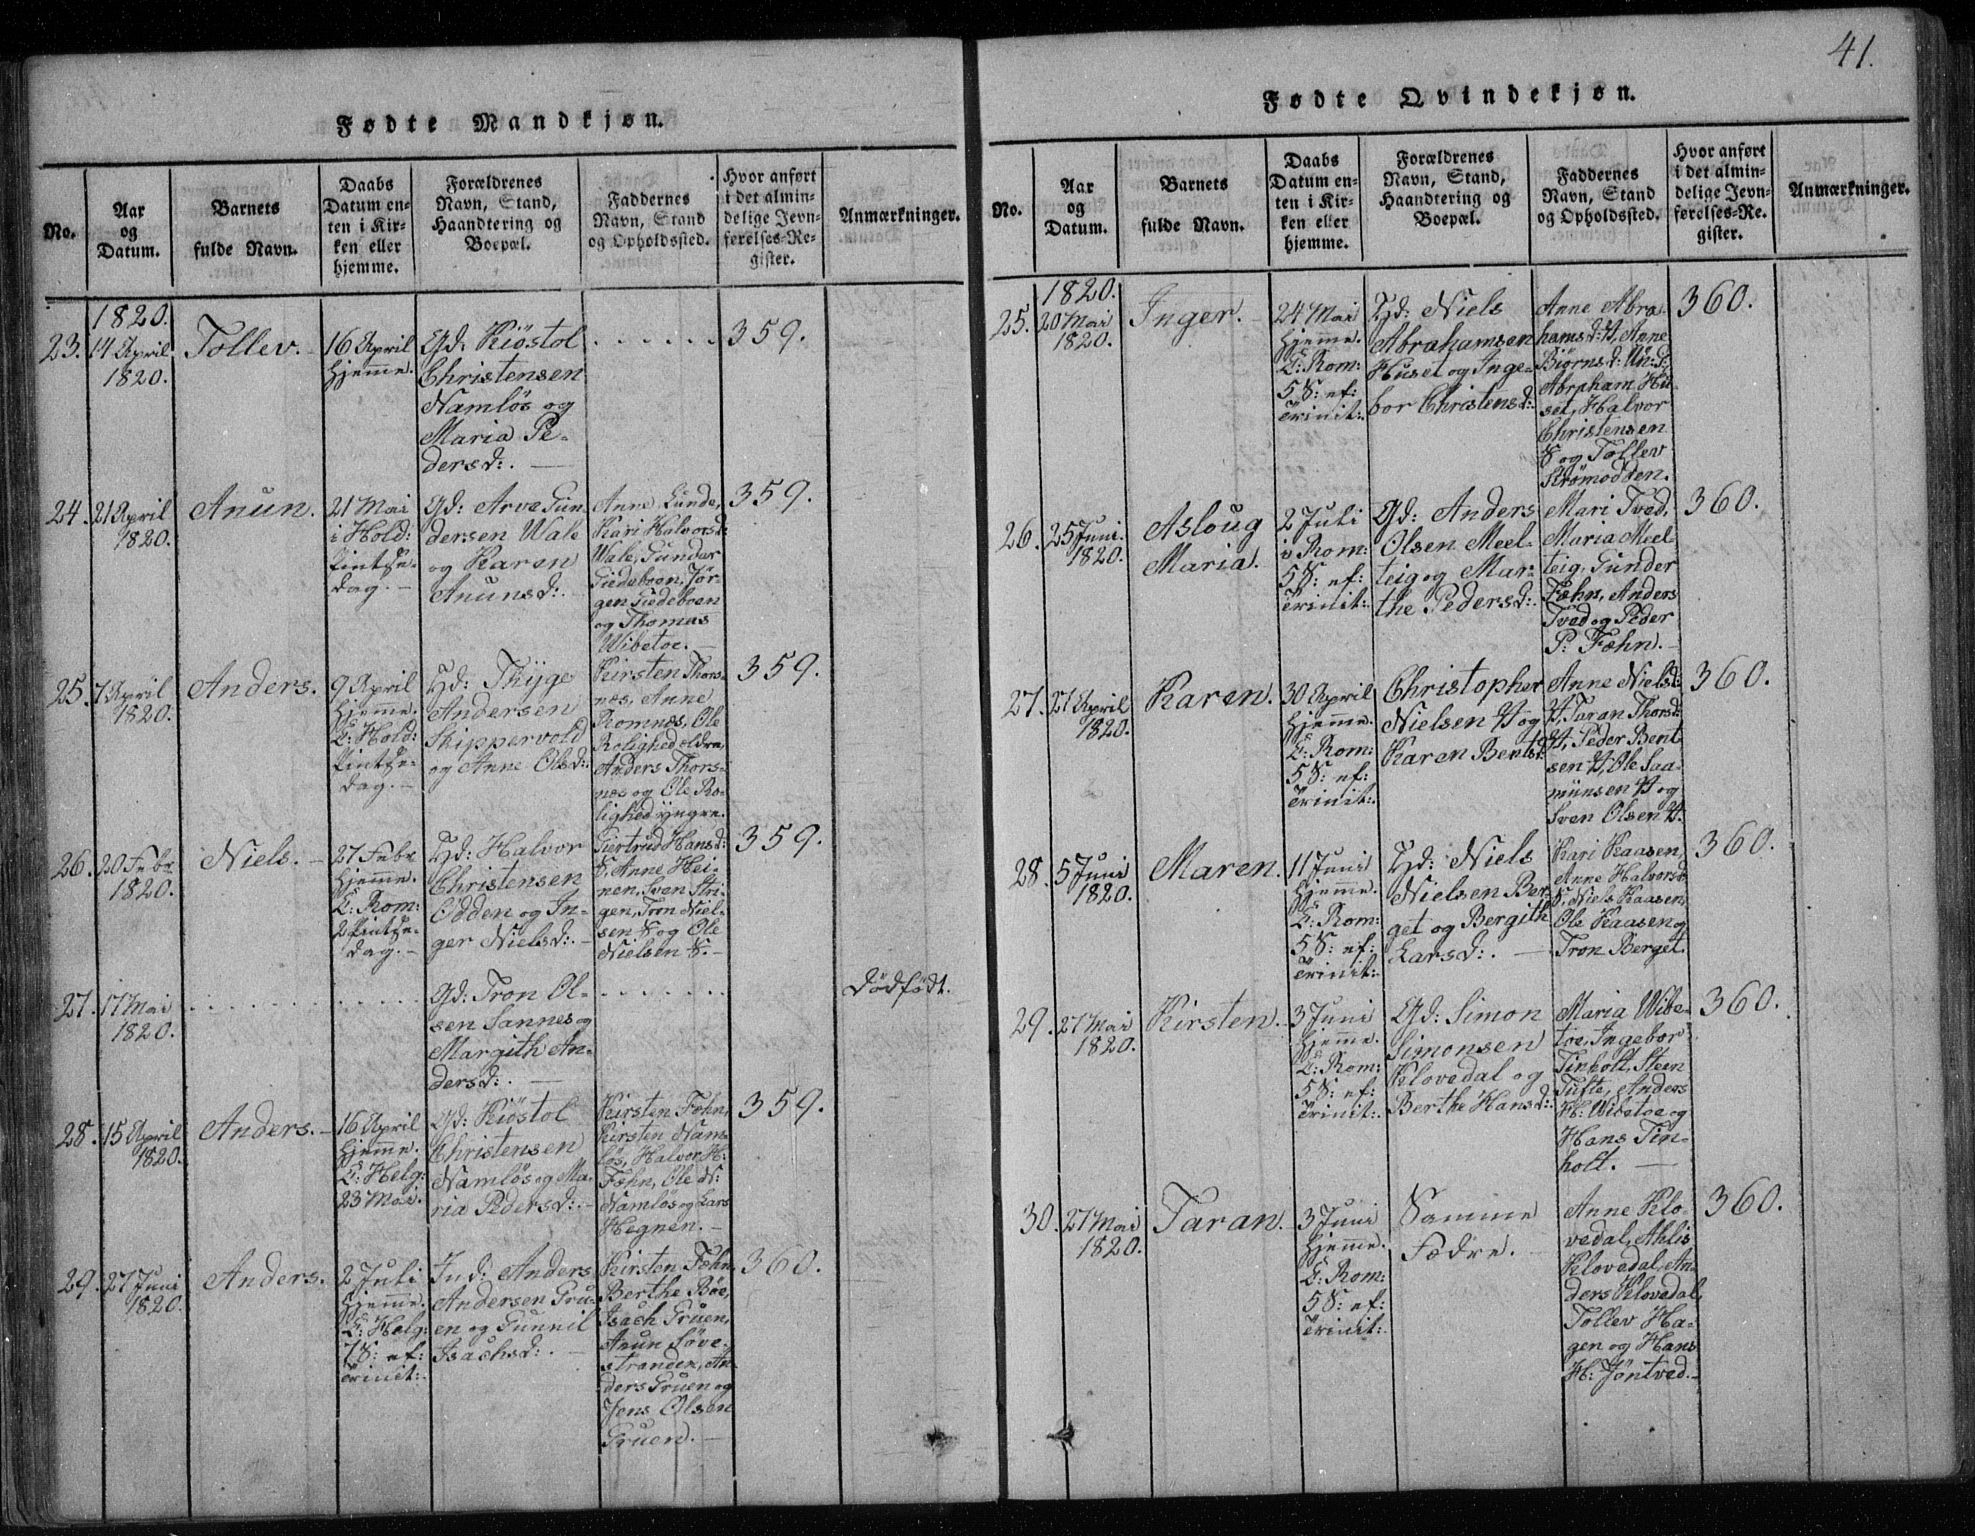 Fødte Mandkjøn.
No.
Aar
og
Datum.
Barnets
fulde Navn.
Daabs
Datum en-
ten i Kir-
ken eller
hjemme.
Forældrenes
Navn, Stand,
Haandtering og
Boepæl.
Faddernes
Navn, Stand
og Opholdssted.
Hvor anført
i det almin-
delige Jevn-
førelses-Re-
gister.
Anmærkninger.
1820.
23.
14 April
1820.
Tollev.
16 April
hjemme.
Gd: Kiöstol
Christensen
Namlös og
Maria Pe-
dersd:.
359.
24.
21 April
1820.
Anun.
21 Mai
i Hold:
Pintse-
dag.
Gd: Arve Gun
dersen Wale
og Karen
Anunsd:.
Anne Lunde,
Kari Halvorsd:
Wale, Gunder
Tiedeboen, Jör-
gen Tiedeboen
og Thomas
Wibetoe.
359.
25.
7 April
1820.
Anders.
9 April
hjemme.
C: Hold:
Pintse-
dag.
Hd: Thyge
Andersen
Skippervold
og Anne Olsd:.
Kirsten Thors-
næs, Anne
Romnæs, Ole
Rolighed ældre,
Anders Thors-
næs og Ole Ro-
lighed yngre.
359.
26.
20 Febr
1820.
Niels.
27 Febr
hjemme.
C: Rom:
2 Pintse-
dag.
Hd: Halvor
Christensen
Odden og In-
ger Nielsd:.
Giertrud Hansd:
S, Anne Hei-
nen, Sven Stri-
gen, Tron Niel-
sen S og Ole
Nielsen S.
359.
27.
17 Mai
1820.
Gd: Tron Ol-
sen Sannes og
Margith An-
dersd:.
Dödfödt.
28.
15 April
1820.
Anders.
16 April
hjemme.
C: Helg:
23 Mai.
Gd: Kiöstol
Christensen
Namlös og Ma-
ria Pedersd:.
Kirsten Fæhn,
Kirsten Nam-
lös, Halvor H:
Fæhn, Ole N:
Namlös og Lars
Hegnen.
359.
29.
27 Juni
1820.
Anders.
2 Juli
hjemme.
C: Helg:
7 S: ef:
Trinit:.
Ind: Anders
Andersen Gru-
en og Gunnil
Isachsd:.
Kirsten Fæhn,
Berthe Böe,
Isach Gruen,
Anun Löve-
stranden, An-
ders Gruen og
Jens Olsen
Gruen.
360.
41.
Fødte Qvindekjøn.
No.
Aar
og
Datum.
Barnets
fulde Navn.
Daabs
Datum en-
ten i Kir-
ken eller
hjemme.
Forældrenes
Navn, Stand,
Haandtering og
Boepæl.
Faddernes
Navn, Stand
og Opholdssted.
Hvor anført
i det almin-
delige Jevn-
førelses-Re-
gister.
Anmærkninger.
1820.
25.
20 Mai
1820.
Inger.
24 Mai
hjemme.
C: Rom:
5 S: ef:
Trinit:.
Hd: Niels
Abrahamsen
Huset og Inge-
bor Christensd:.
Anne Abra-
hamsd: H, Anne
Biörnsd:
Abraham Hu-
set, Halvor
Christensen
S og Tollev
Strömodden.
360.
26.
25 Juni
1820.
Asloug
Maria.
2 Juli
i Rom:
5 S: ef:
Trinit:.
Gd: Anders
Olsen Meel-
teig og Mar-
the Pedersd:.
Mari Tved,
Maria Meel-
teig, Gunder
Fæhn, Anders
Tved og Peder
P: Fæhn.
360.
27.
27 April
1820.
Karen.
30 April
hjemme.
C: Rom:
5 S: ef:
Trinit:.
Christopher
Nielsen H og
Karen Bentsd:
Anne Nielsd:
H, Taran Thorsd:
H, Peder Bent
sen H, Ole Saa-
munsen H og
Sven Olsen H.
360.
28.
5 Juni
1820.
Maren.
11 Juni
hjemme.
C: Rom:
5 S: ef:
Trinit:.
Hd: Niels
Nielsen Ber-
get og Bergith
Larsd:.
Kari Kaasen,
Anne Halvorsd:
S, Niels Kaasen,
Ole Kaasen og
Tron Berget.
360.
29.
27 Mai
1820.
Kirsten.
3 Juni
hjemme.
C: Rom:
5 S: ef:
Trinit:.
Gd: Simon
Simonsen
Klovedal og
Berthe Hansd:.
Maria Wibe-
toe, Ingebor
Tinholt, Steen
Tufte, Anders
H: Wibetoe og
Hans Tin-
holt.
360.
30.
27 Mai
1820.
Taran.
3 Juni
hjemme.
C: Rom:
5 S: ef:
Trinit:.
Samme
Fædre.
Anne Klo-
vedal, Athlis
Klovedal, An-
ders Klovedal,
Tollev Ha-
gen og Hans
H: Jöntved.
360.